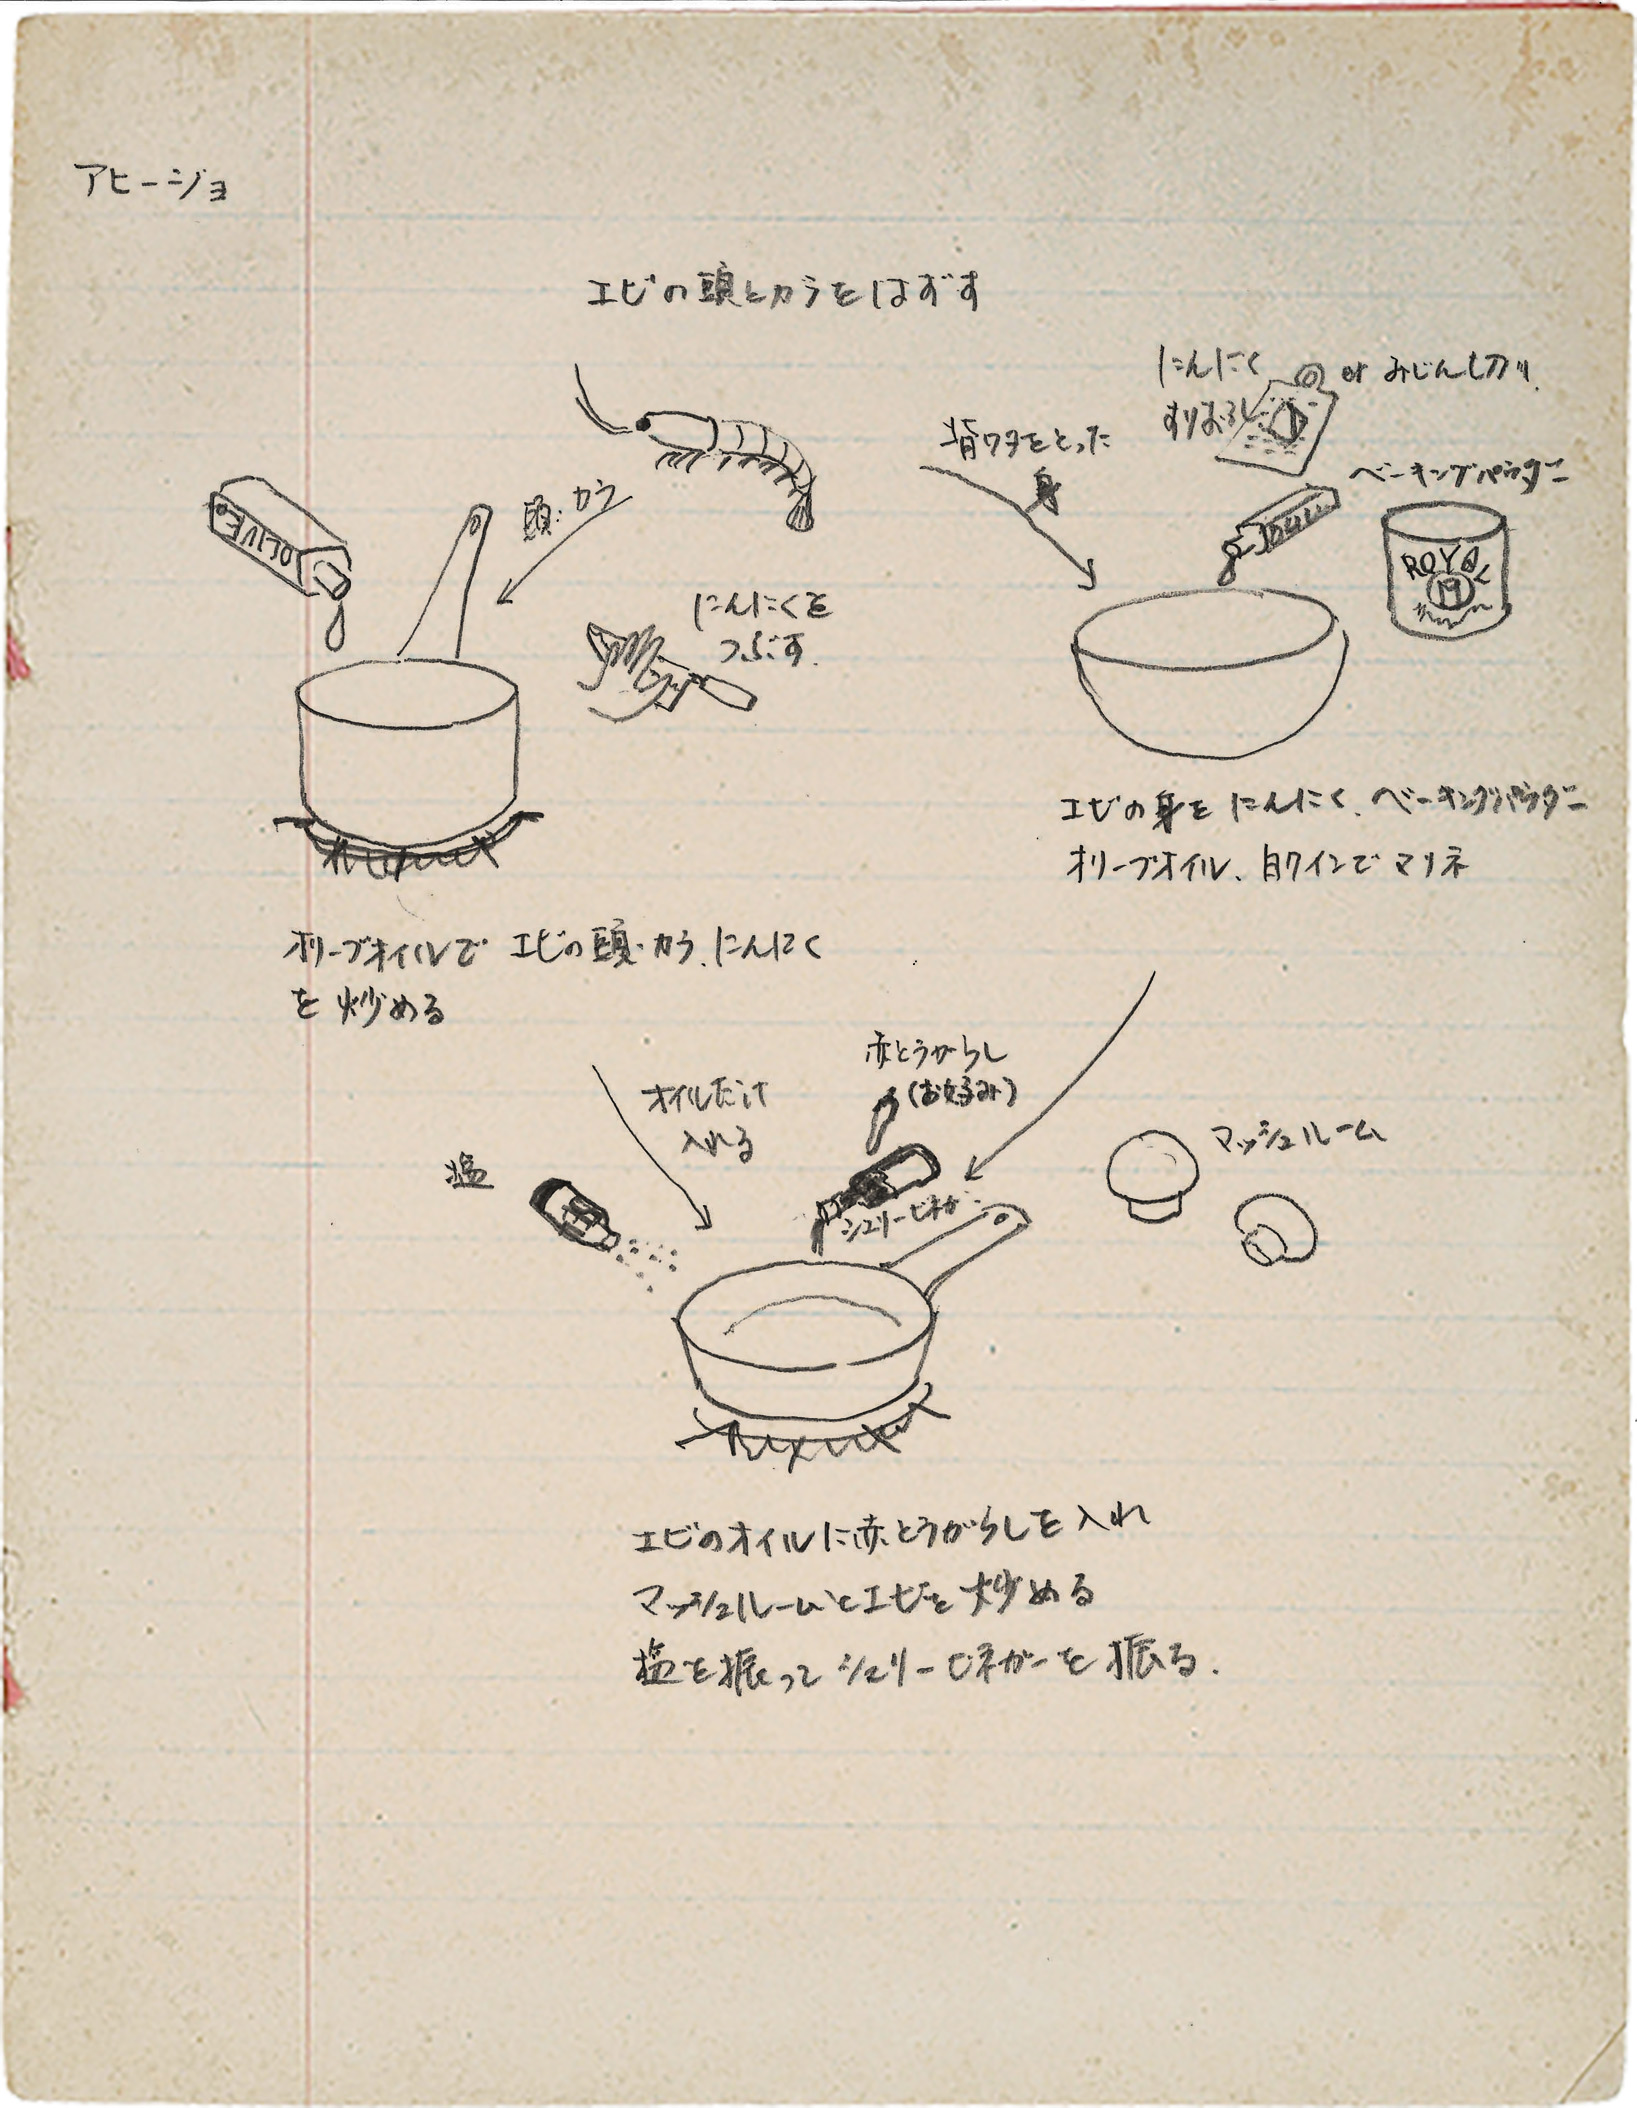 アヒージョ
エビの頭とカラをはずす
にんにく
すりおろし
or みじん切り
背ワタをとった
身
ベーキングパウダー
ROYAL
OLIVE
頭・カラ
にんにくを
つぶす
エビの身を にんにく、ベーキングパウダー
オリーブオイル、白ワインで マリネ
オリーブオイルで エビの頭・カラ、にんにく
を 炒める
オイルだけ
入れる
赤とうがらし
(お好み)
塩
シェリービネガー
マッシュルーム
エビのオイルに赤とうがらしを入れ
マッシュルームとエビを炒める
塩を振って シェリービネガーを振る.